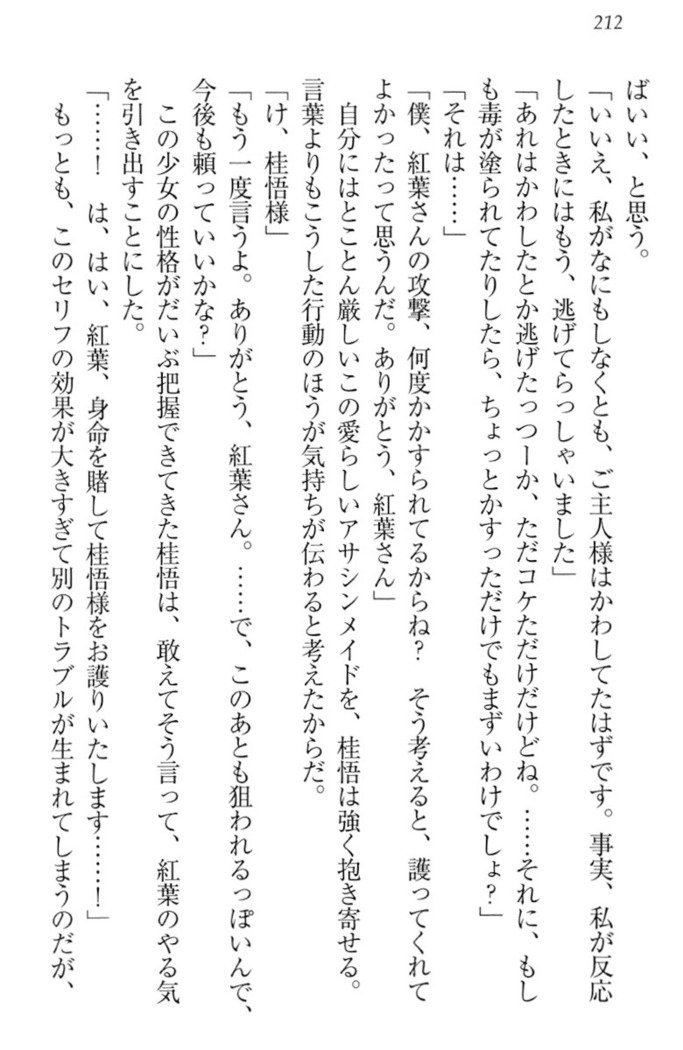 212
ばいい、と思う。
「いいえ、私がなにもしなくとも、ご主人様はかわしてたはずです。事実、私が反応
したときにはもう、逃げてらっしゃいました」
「あれはかわしたとか逃げたっつーか、ただコケただけだけどね。……それに、もし
も毒が塗られてたりしたら、ちょっとかすっただけでもまずいわけでしょ？」
「それは……」
「僕、紅葉さんの攻撃、何度かかすられてるからね？　そう考えると、護ってくれて
よかったって思うんだ。ありがとう、紅葉さん」
　自分にはとことん厳しいこの愛らしいアサシンメイドを、桂悟は強く抱き寄せる。
言葉よりもこうした行動のほうが気持ちが伝わると考えたからだ。
「け、桂悟様」
「もう一度言うよ。ありがとう、紅葉さん。……で、このあとも狙われるっぽいんで、
今後も頼っていいかな？」
　この少女の性格がだいぶ把握できてきた桂悟は、敢えてそう言って、紅葉のやる気
を引き出すことにした。
「……！　は、はい、紅葉、身命を賭して桂悟様をお護りいたします……！」
　もっとも、このセリフの効果が大きすぎて別のトラブルが生まれてしまうのだが、